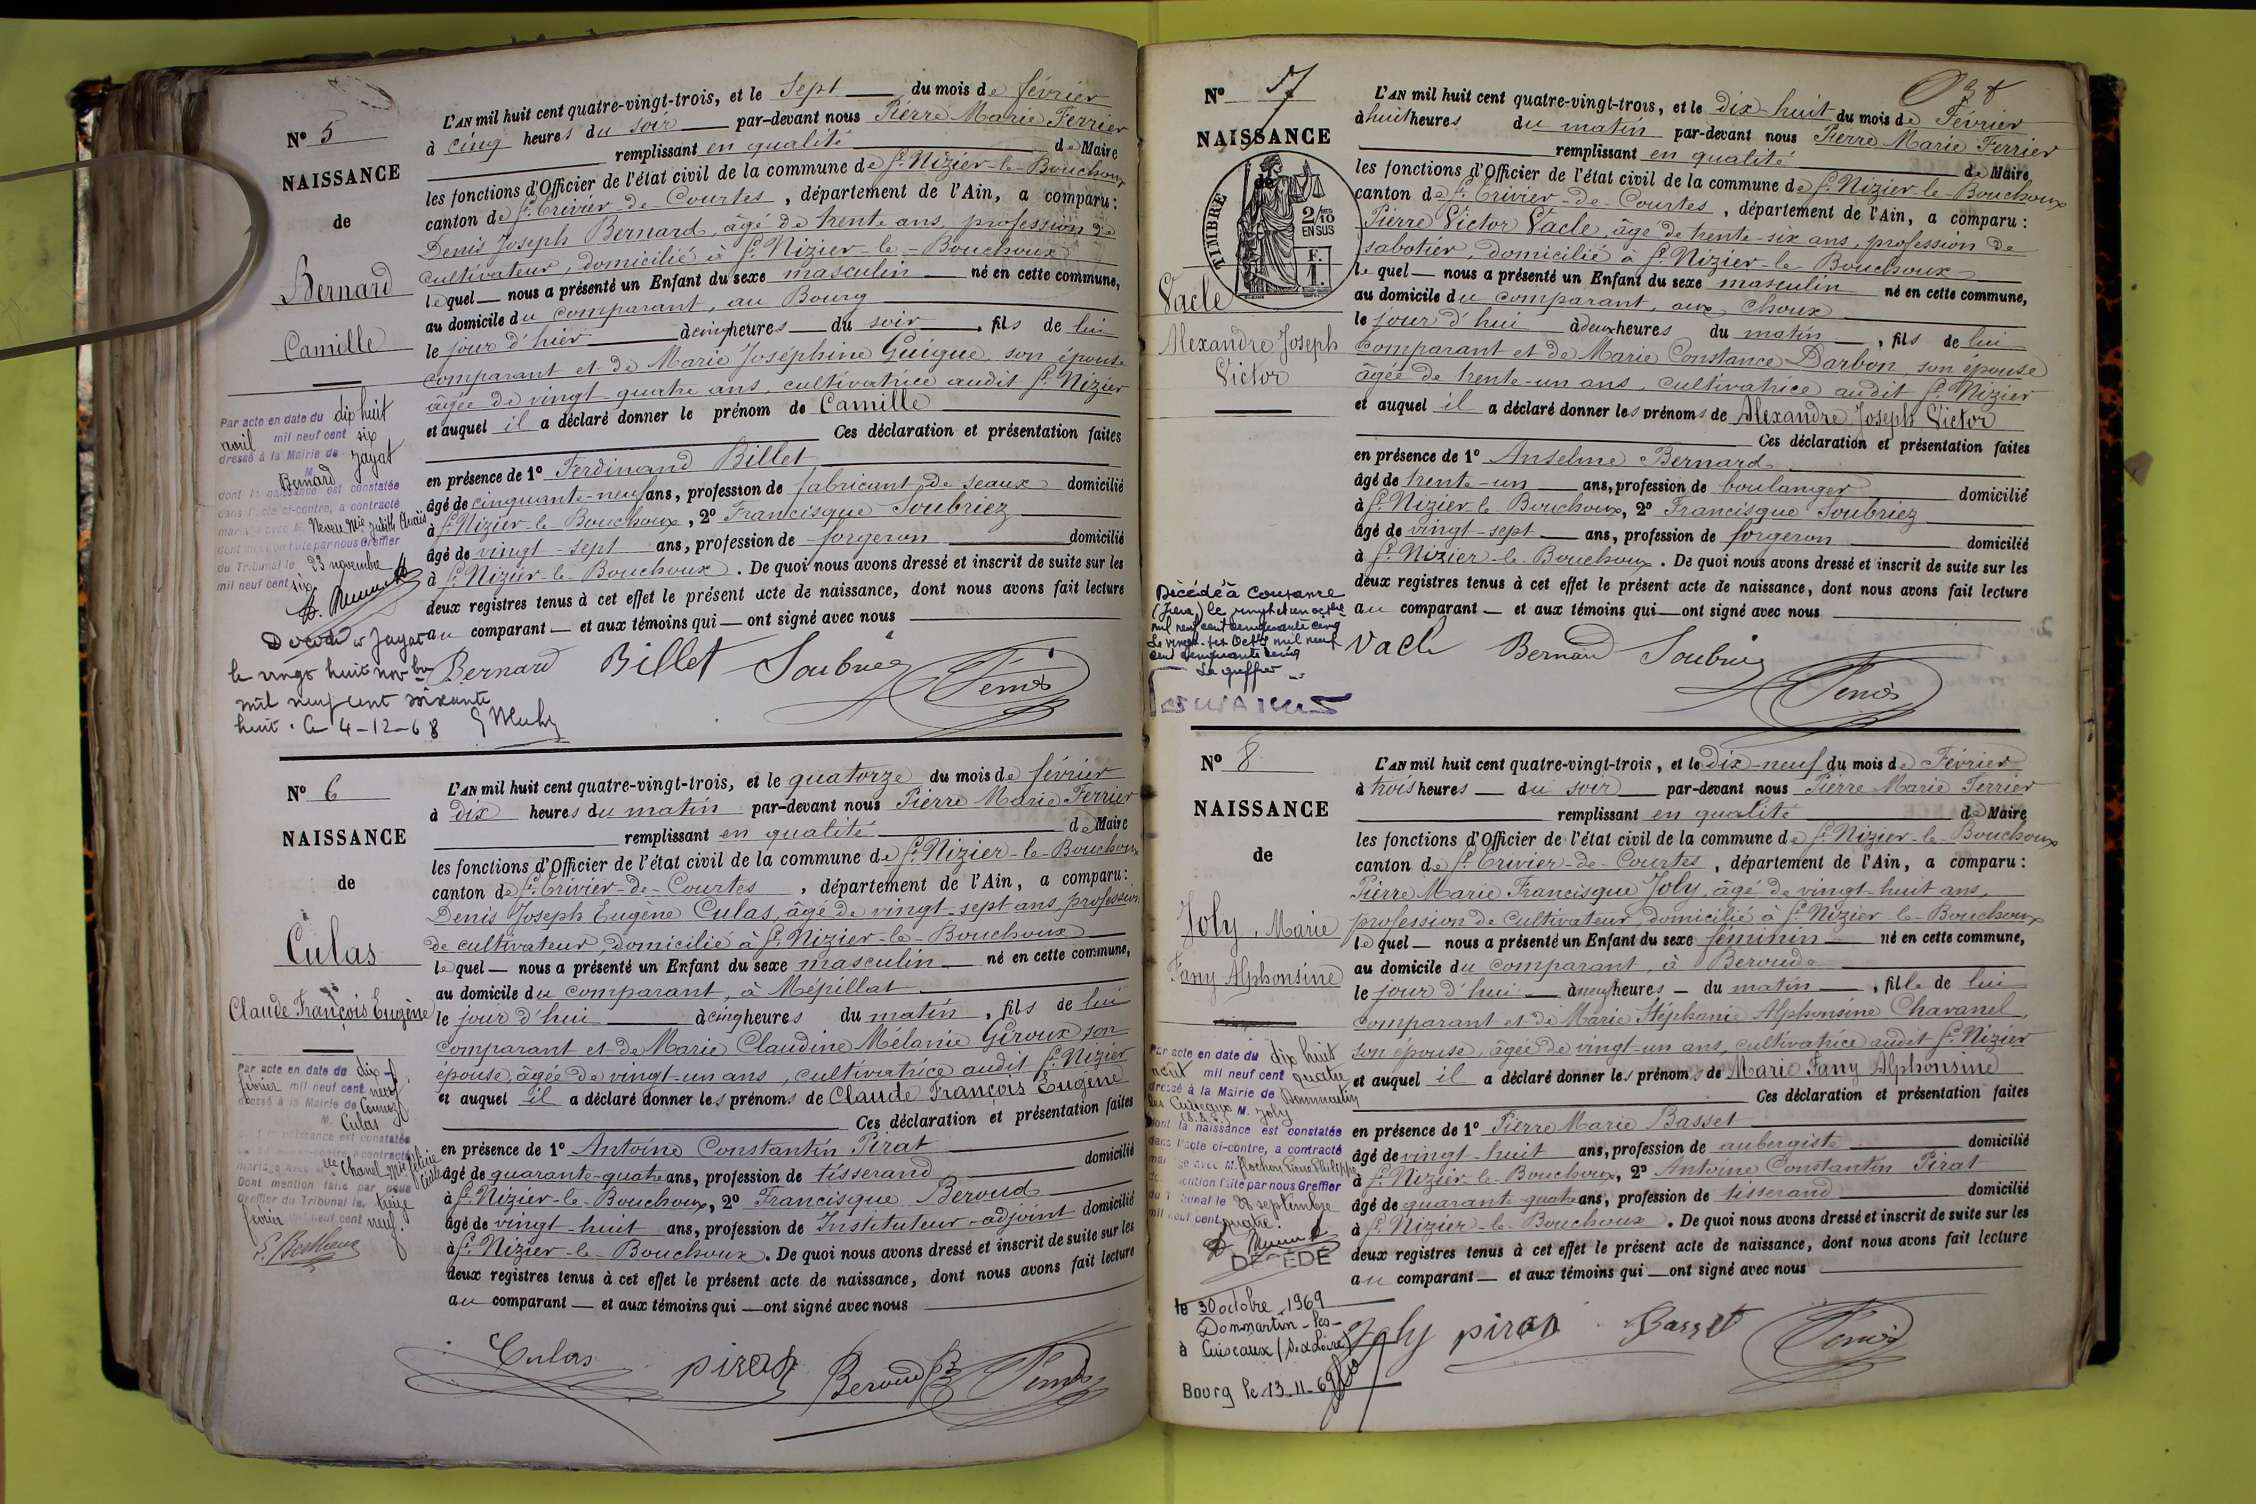 N° 5
NAISSANCE
de
Bernard
Camille
L'AN mil huit cent quatre-vingt-trois, et le sept du mois de février
à cinq heures du soir par-devant nous Pierre Marie Ferrier
remplissant en qualité de Maire
les fonctions d'Officier de l'état civil de la commune de St Nizier-le-Bouchoux
canton de St Trivier-de-Courtes, département de l'Ain, a comparu:
Denis Joseph Bernard, âgé de trente ans, profession de
cultivateur, domicilié à St Nizier-le-Bouchoux
lequel nous a présenté un Enfant du sexe masculin né en cette commune,
au domicile du comparant, au Bourg
le jour d'hier à cinq heures du soir, fils de lui
comparant et de Marie Joséphine Guigue son épouse
âgée de vingt-quatre ans, cultivatrice audit St Nizier
et auquel il a déclaré donner le prénom de Camille
Ces déclaration et présentation faites
en présence de 1° Ferdinand Billet
âgé de cinquante-neuf ans, profession de fabricant de seaux domicilié
à St Nizier-le-Bouchoux, 2° Francisque Soubriez
âgé de vingt-sept ans, profession de forgeron domicilié
à St Nizier-le-Bouchoux. De quoi nous avons dressé et inscrit de suite sur les
deux registres tenus à cet effet le présent acte de naissance, dont nous avons fait lecture
au comparant et aux témoins qui ont signé avec nous
Bernard Billet Soubriez
Par acte en date du dix huit
avril mil neuf cent six
dressé à la Mairie de Jayat
M. Bernard
dont la naissance est constatée
dans l'acte ci-contre, a contracté
mariage avec M. Neveu Mie Judith
dont mention faite par nous Greffier
du Tribunal le 23 novembre
mil neuf cent six
Décédé à Jayat
le vingt huit novbre
mil neuf cent soixante
huit. Le 4-12-68
N° 6
NAISSANCE
de
Culas
Claude François Eugène
L'AN mil huit cent quatre-vingt-trois, et le quatorze du mois de février
à dix heures du matin par-devant nous Pierre Marie Ferrier
remplissant en qualité de Maire
les fonctions d'Officier de l'état civil de la commune de St Nizier-le-Bouchoux
canton de St Trivier-de-Courtes, département de l'Ain, a comparu:
Denis Joseph Eugène Culas, âgé de vingt-sept ans, profession
de cultivateur, domicilié à St Nizier-le-Bouchoux
lequel nous a présenté un Enfant du sexe masculin né en cette commune,
au domicile du comparant, à Mépillat
le jour d'hui à cinq heures du matin, fils de lui
comparant et de Marie Claudine Mélanie Giroux son
épouse, âgée de vingt-un ans, cultivatrice audit St Nizier
et auquel il a déclaré donner les prénoms de Claude François Eugène
Ces déclaration et présentation faites
en présence de 1° Antoine Constantin Pirat
âgé de quarante-quatre ans, profession de tisserand domicilié
à St Nizier-le-Bouchoux, 2° Francisque Beroud
âgé de vingt-huit ans, profession de Instituteur-adjoint domicilié
à St Nizier-le-Bouchoux. De quoi nous avons dressé et inscrit de suite sur les
deux registres tenus à cet effet le présent acte de naissance, dont nous avons fait lecture
au comparant et aux témoins qui ont signé avec nous
Culas pirat Beroud
Par acte en date du dix
février mil neuf cent neuf
dressé à la Mairie de
M. Culas
naissance est constatée
Chanel Mie Félicie
Dont mention faite par nous
Greffier du Tribunal le treize
février mil neuf cent neuf.
N° 7
NAISSANCE
de
TIMBRE
2/10
EN SUS
Vacle
Alexandre Joseph
Victor
L'AN mil huit cent quatre-vingt-trois, et le dix-huit du mois de Février
à huit heures du matin par-devant nous Pierre Marie Ferrier
remplissant en qualité de Maire
les fonctions d'Officier de l'état civil de la commune de St Nizier-le-Bouchoux
canton de St Trivier-de-Courtes, département de l'Ain, a comparu:
Pierre Victor Vacle, âgé de trente-six ans, profession de
sabotier, domicilié à St Nizier-le-Bouchoux
lequel nous a présenté un Enfant du sexe masculin né en cette commune,
au domicile du comparant, aux Choux
le jour d'hui à deux heures du matin, fils de lui
comparant et de Marie Constance Darbon, son épouse
âgée de trente-un ans, cultivatrice audit St Nizier
et auquel il a déclaré donner les prénoms de Alexandre Joseph Victor
Ces déclaration et présentation faites
en présence de 1° Anselme Bernard
âgé de trente-un ans, profession de boulanger domicilié
à St Nizier-le-Bouchoux, 2° Francisque Soubriez
âgé de vingt-sept ans, profession de forgeron domicilié
à St Nizier-le-Bouchoux. De quoi nous avons dressé et inscrit de suite sur les
deux registres tenus à cet effet le présent acte de naissance, dont nous avons fait lecture
au comparant et aux témoins qui ont signé avec nous
Vacle Bernard Soubriez
Décédé à Coutance
le vingt et un octbre
mil neuf cent cinquante cinq
mil neuf
cent cinquante cinq
Le greffier
N° 8
NAISSANCE
de
Joly, Marie
Fany Alphonsine
L'AN mil huit cent quatre-vingt-trois, et le dix-neuf du mois de Février
à trois heures du soir par-devant nous Pierre Marie Ferrier
remplissant en qualité de Maire
les fonctions d'Officier de l'état civil de la commune de St Nizier-le-Bouchoux
canton de St Trivier-de-Courtes, département de l'Ain, a comparu:
Pierre Marie Francisque Joly, âgé de vingt-huit ans,
profession de cultivateur, domicilié à St Nizier-le-Bouchoux
lequel nous a présenté un Enfant du sexe féminin né en cette commune,
au domicile du comparant, à Beroude
le jour d'hui à neuf heures du matin, fille de lui
comparant et de Marie Stéphanie Alphonsine Chavanel,
son épouse, âgée de vingt-un ans, cultivatrice audit St Nizier
et auquel il a déclaré donner les prénoms de Marie Fany Alphonsine
Ces déclaration et présentation faites
en présence de 1° Pierre Marie Basset
âgé de vingt-huit ans, profession de aubergiste domicilié
à St Nizier-le-Bouchoux, 2° Antoine Constantin Pirat
âgé de quarante-quatre ans, profession de tisserand domicilié
à St Nizier-le-Bouchoux. De quoi nous avons dressé et inscrit de suite sur les
deux registres tenus à cet effet le présent acte de naissance, dont nous avons fait lecture
au comparant et aux témoins qui ont signé avec nous
Joly piran Basset
Par acte en date du dix huit
août mil neuf cent quatre
dressé à la Mairie de Dommartin
les Cuiseaux M. Joly
dont la naissance est constatée
dans l'acte ci-contre, a contracté
mariage avec M. Flochon Pierre Philippe
mention faite par nous Greffier
du Tribunal le 28 septembre
mil neuf cent quatre.
DÉCÉDÉ
le 30 octobre 1969
Dommartin-les-
à Cuiseaux (S. et Loire)
Bourg le 13-11-69